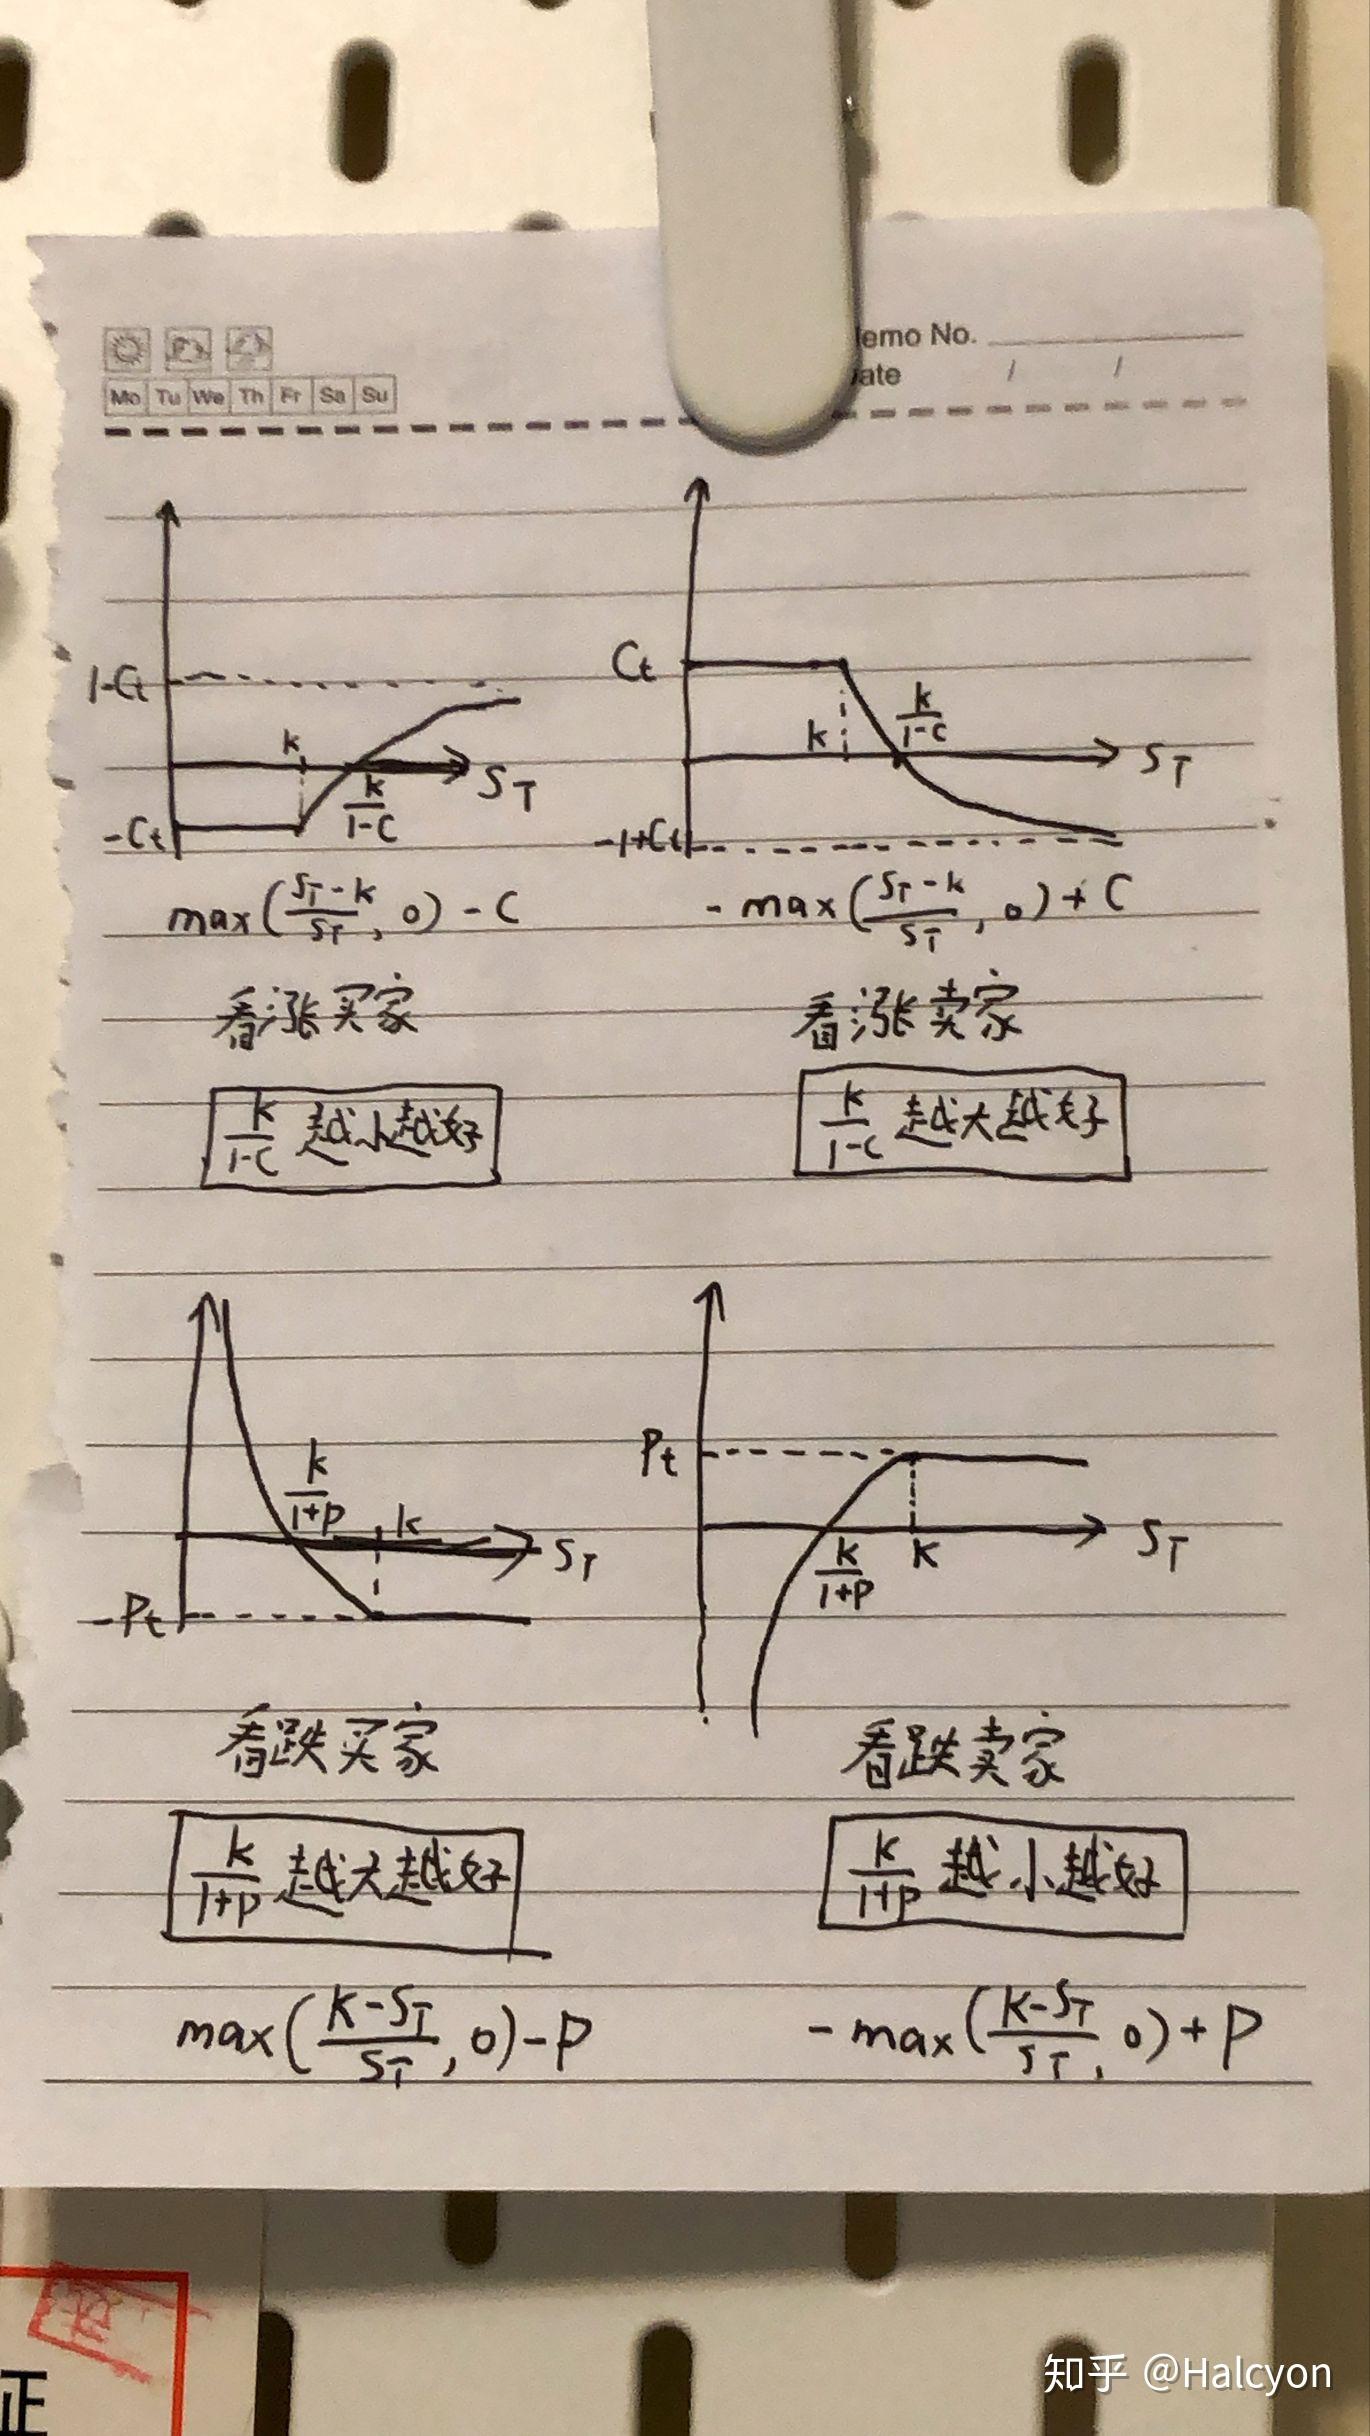 emo No.
ate / /
Mo Tu We Th Fr Sa Su
1-Ct
k
ST
k/1-C
-Ct
max(ST-k/ST, 0) - C
看涨买家
k/1-C 越小越好
Ct
k
k/1-C
ST
-1+Ct
-max(ST-k/ST, 0) + C
看涨卖家
k/1-C 越大越好
k/1+P
k
ST
-Pt
看跌买家
k/1+P 越大越好
max(K-ST/ST, 0) - P
Pt
k/1+P
K
ST
看跌卖家
k/1+P 越小越好
-max(K-ST/ST, 0) + P
正
知乎 @Halcyon